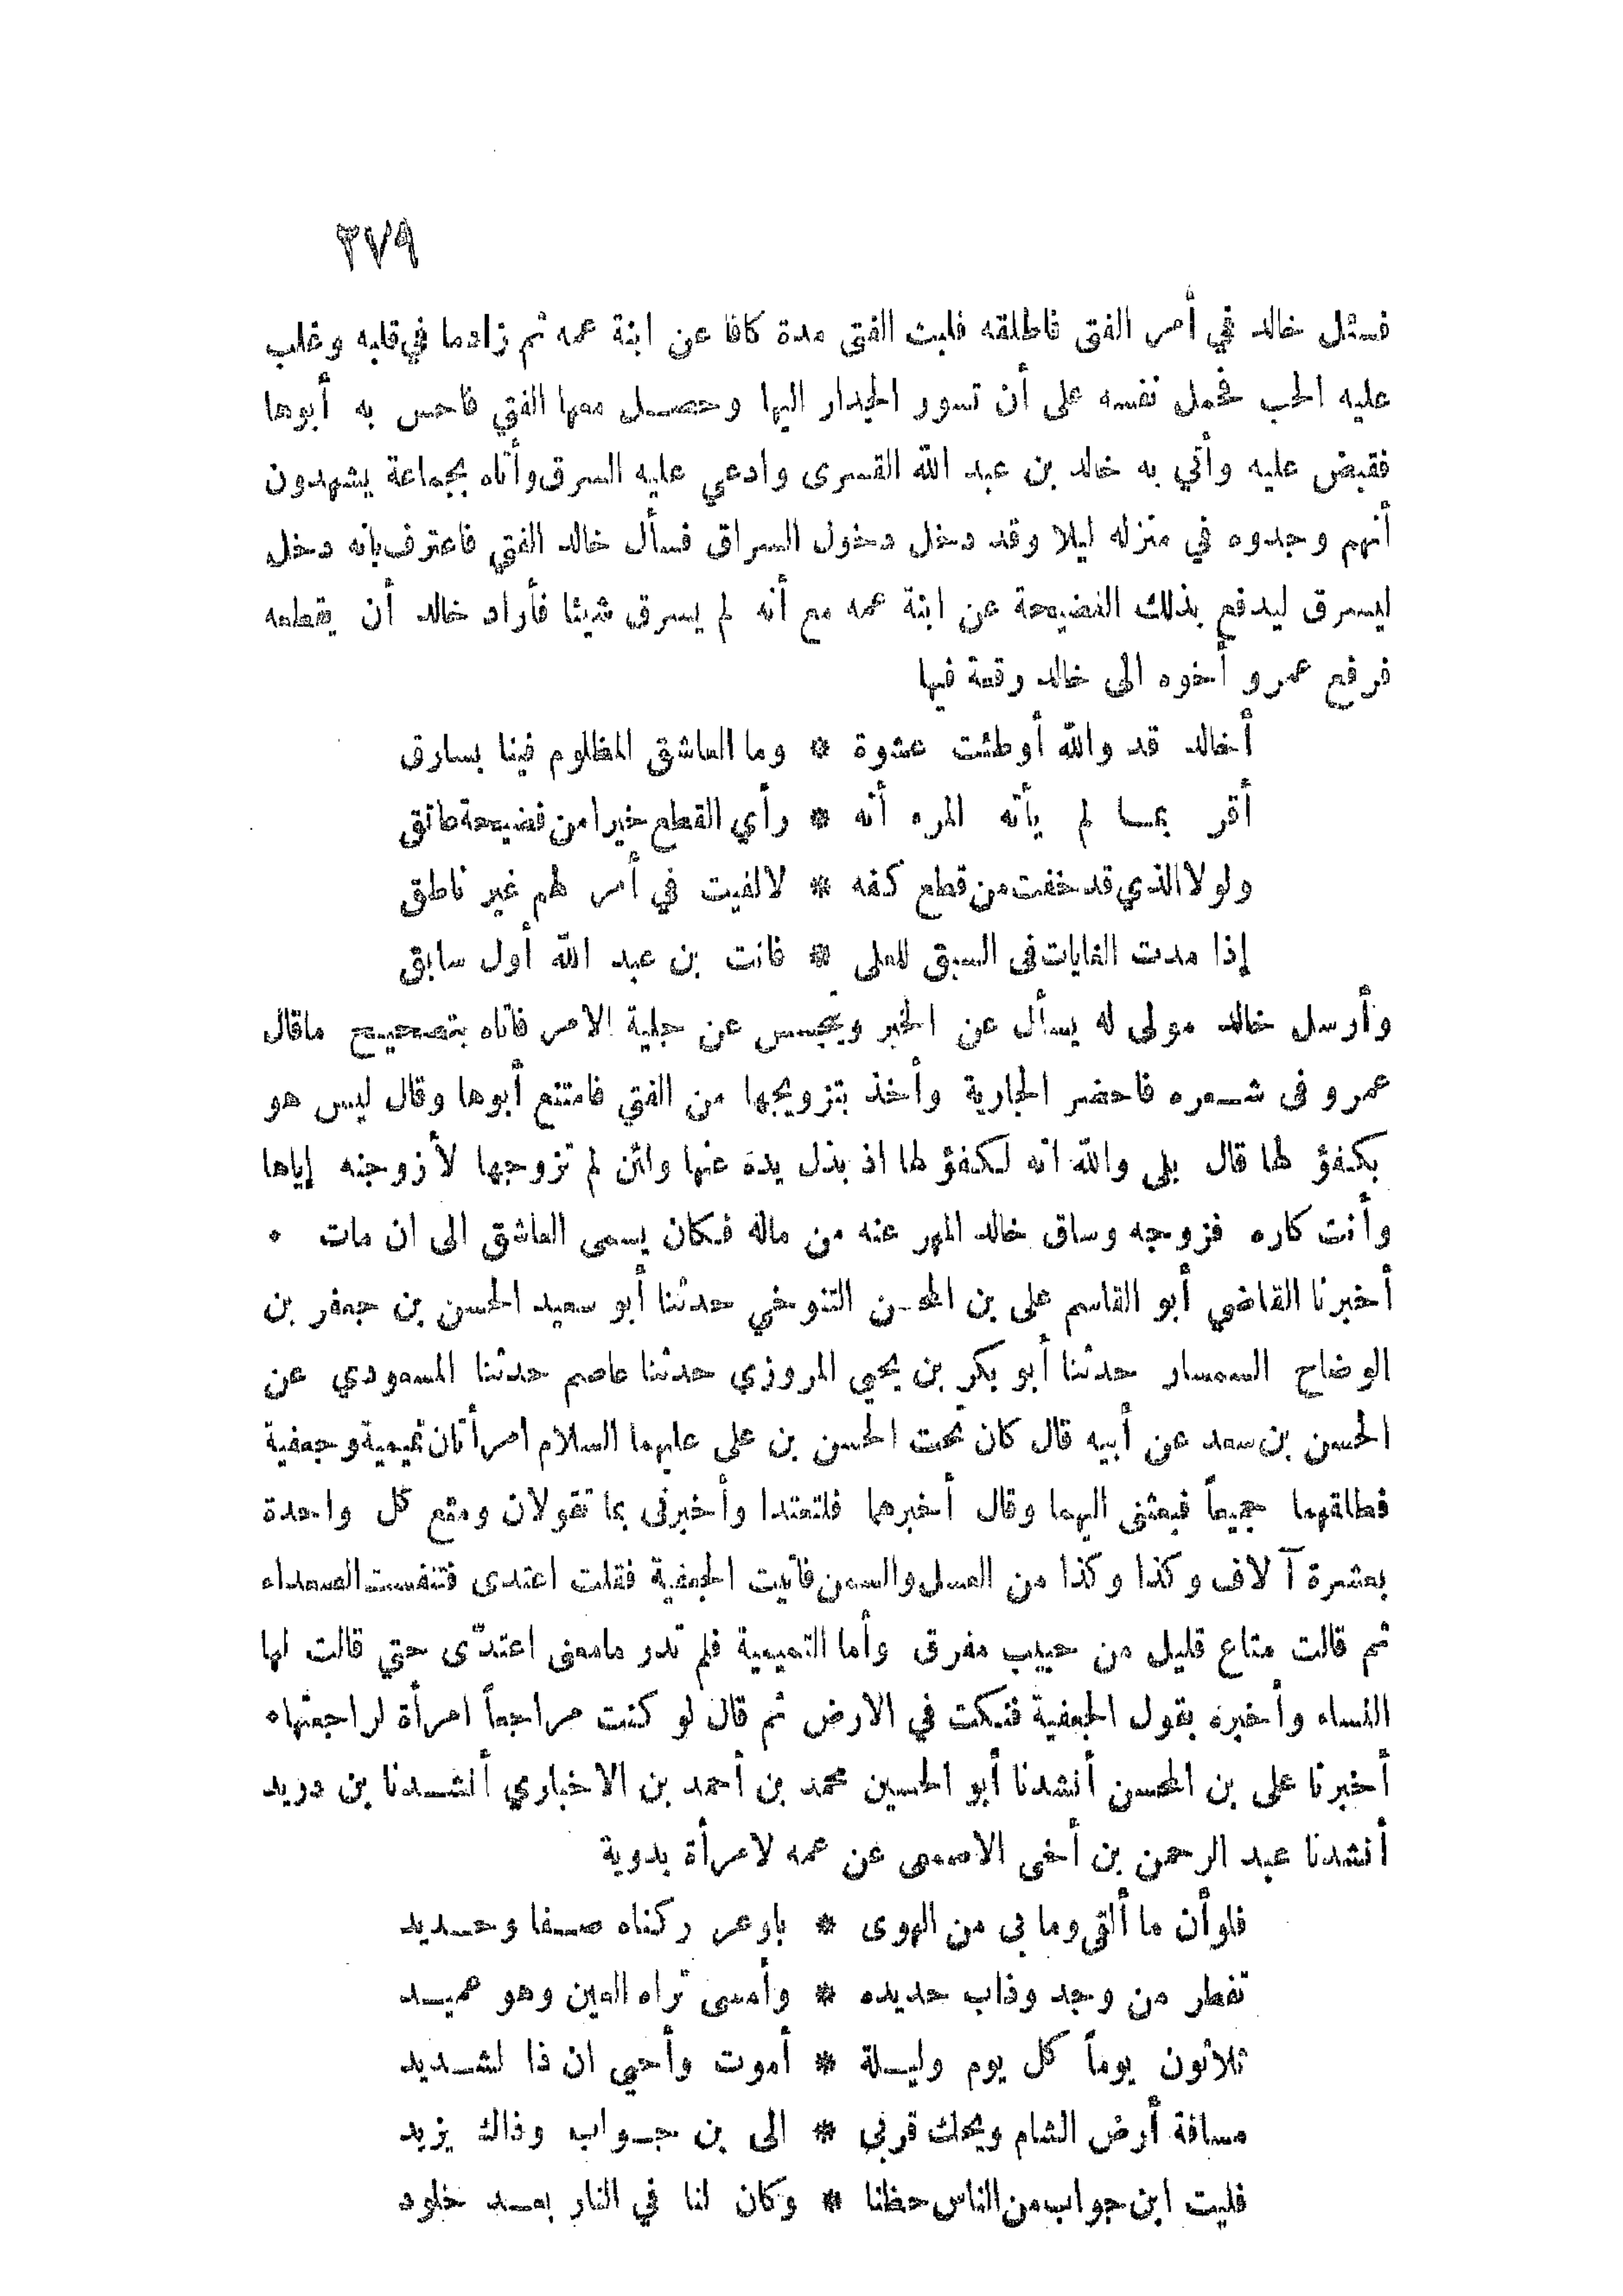 ٣٧٩
فسئل خالد في أمر الفتى فاطلقه فلبث الفتى مدة كافا عن ابنة عمه ثم زادما في قلبه وغلب
عليه الحب فحمل نفسه على أن تسور الجدار اليها وحصل معها الفتي فاحس به أبوها
فقبض عليه وأتي به خالد بن عبد الله القسرى وادعي عليه السرق وأتاه بجماعة يشهدون
أنهم وجدوه في منزله ليلا وقد دخل دخول السراق فسأل خالد الفتي فاعترف بانه دخل
ليسرق ليدفع بذلك الفضيحة عن ابنة عمه مع أنه لم يسرق شيئا فأراد خالد أن يقطعه
فرفع عمرو أخوه الى خالد رقعة فيها
أخالد قد والله أوطئت عشوة * وما العاشق المظلوم فينا بسارق
أقر بما لم يأته المرء أنه * رأي القطع خيرا من فضيحة عاتق
ولولا الذي قد خفت من قطع كفه * لالفيت في أمر لهم غير ناطق
إذا مدت الغايات فى السبق للعلى * فانت بن عبد الله أول سابق
وأرسل خالد مولى له يسأل عن الخبر ويجسس عن جلية الامر فاتاه بتصحيح ماقال
عمرو فى شعره فاحضر الجارية وأخذ بتزويجها من الفتي فامتنع أبوها وقال ليس هو
بكفؤ لها قال بلى والله انه لكفؤ لها اذ بذل يده عنها ولئن لم تزوجها لأزوجنه إياها
وأنت كاره فزوجه وساق خالد المهر عنه من ماله فكان يسمى العاشق الى ان مات ٠
أخبرنا القاضي أبو القاسم على بن المحسن التنوخي حدثنا أبو سعيد الحسن بن جعفر بن
الوضاح السمسار حدثنا أبو بكر بن يحيي المروزي حدثنا عاصم حدثنا المسعودي عن
الحسن بن سعد عن أبيه قال كان تحت الحسن بن على عليهما السلام امرأتان تميمية وجعفية
فطلقهما جميعاً فبعثني اليهما وقال أخبرهما فلتعتدا وأخبرنى بما تقولان ومتع كل واحدة
بعشرة آلاف وكذا وكذا من العسل والسمن فأتيت الجعفية فقلت اعتدى فتنفست الصعداء
ثم قالت متاع قليل من حبيب مفرق وأما التميمية فلم تدر مامعنى اعتدّى حتي قالت لها
النساء وأخبره بقول الجعفية فنكت في الارض ثم قال لو كنت مراجعاً امرأة لراجعتها٠
أخبرنا على بن المحسن أنشدنا أبو الحسين محمد بن أحمد بن الاخباري أنشدنا بن دريد
أنشدنا عبد الرحمن بن أخى الاصمعى عن عمه لامرأة بدوية
فلو أن ما ألقى وما بى من الهوى * بارعر ركناه صفا وحديد
تفطر من وجد وذاب حديده * وأمسى تراه العين وهو عميد
ثلاثون يوماً كل يوم وليلة * أموت وأحيي ان ذا لشديد
مسافة أرض الشام ويحك قربي * الى بن جواب وذاك يزيد
فليت ابن جواب من الناس حظنا * وكان لنا في النار بعد خلود